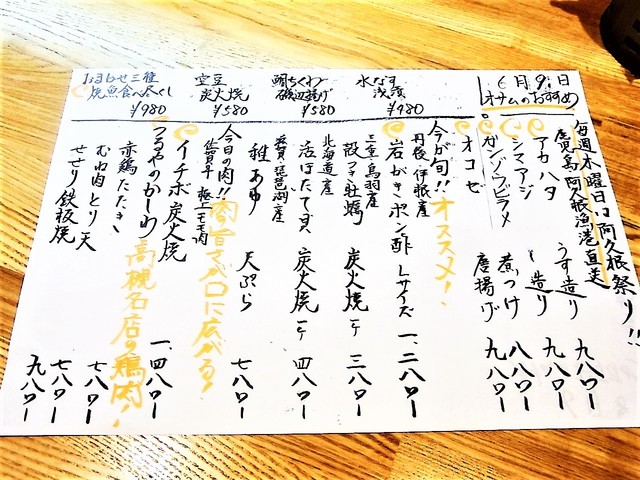 6月9日
オサムのおすすめ
水なす
浅漬
¥980
鯛ちくわ
磯辺揚げ
¥580
空豆
炭火焼
¥580
おまかせ三種
焼魚食べ尽くし
¥980
毎週木曜日は阿久根祭り!!
鹿児島阿久根漁港直送
アカハタ うす造り 九八〇ー
シマアジ 造り 九八〇ー
ガンゾウビラメ 煮つけ 八八〇ー
オコゼ 唐揚げ 九八〇ー
今が旬!!オススメ!
丹後・伊根産
岩がきポン酢 Lサイズ 一、二八〇ー
三重・鳥羽産
殻つき牡蠣 炭火焼 一ケ 三八〇ー
北海道産
活ほたて貝 炭火焼 一ケ 四八〇ー
滋賀・琵琶湖産
稚あゆ 天ぷら 七八〇ー
今日の肉!!肉旨マグロに広がる!
佐賀牛 極上モモ肉
イチボ炭火焼 一、四八〇ー
つるやのかしわ 高槻名店の鶏肉!
赤鶏たたき 七八〇ー
むね肉とり天 七八〇ー
せせり鉄板焼 九八〇ー